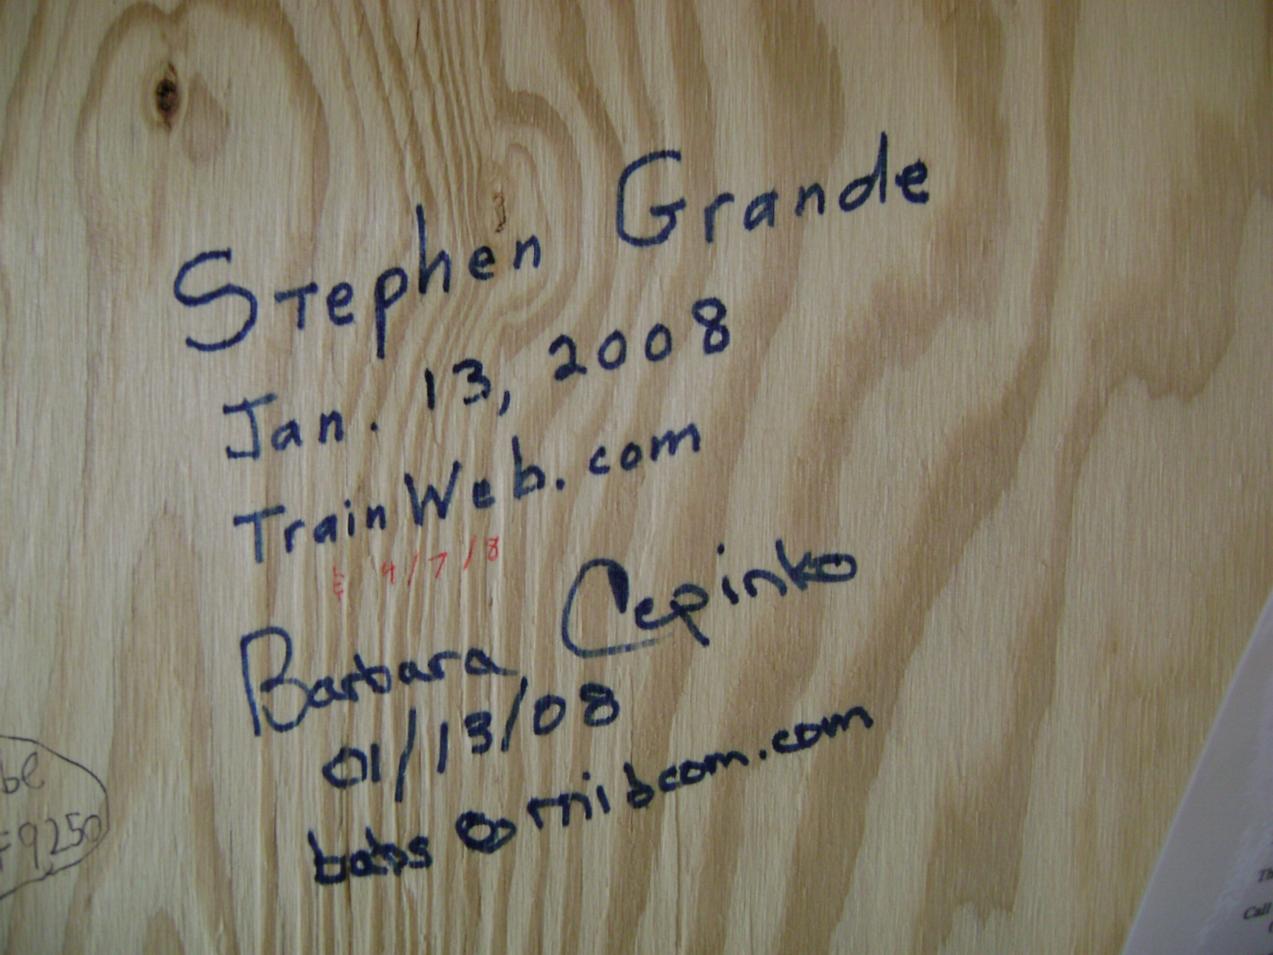 Stephen Grande
Jan. 13, 2008
TrainWeb.com
& 4/7/8
Barbara Cepinko
01/13/08
babs@mibcom.com
be
9250
Th
Call